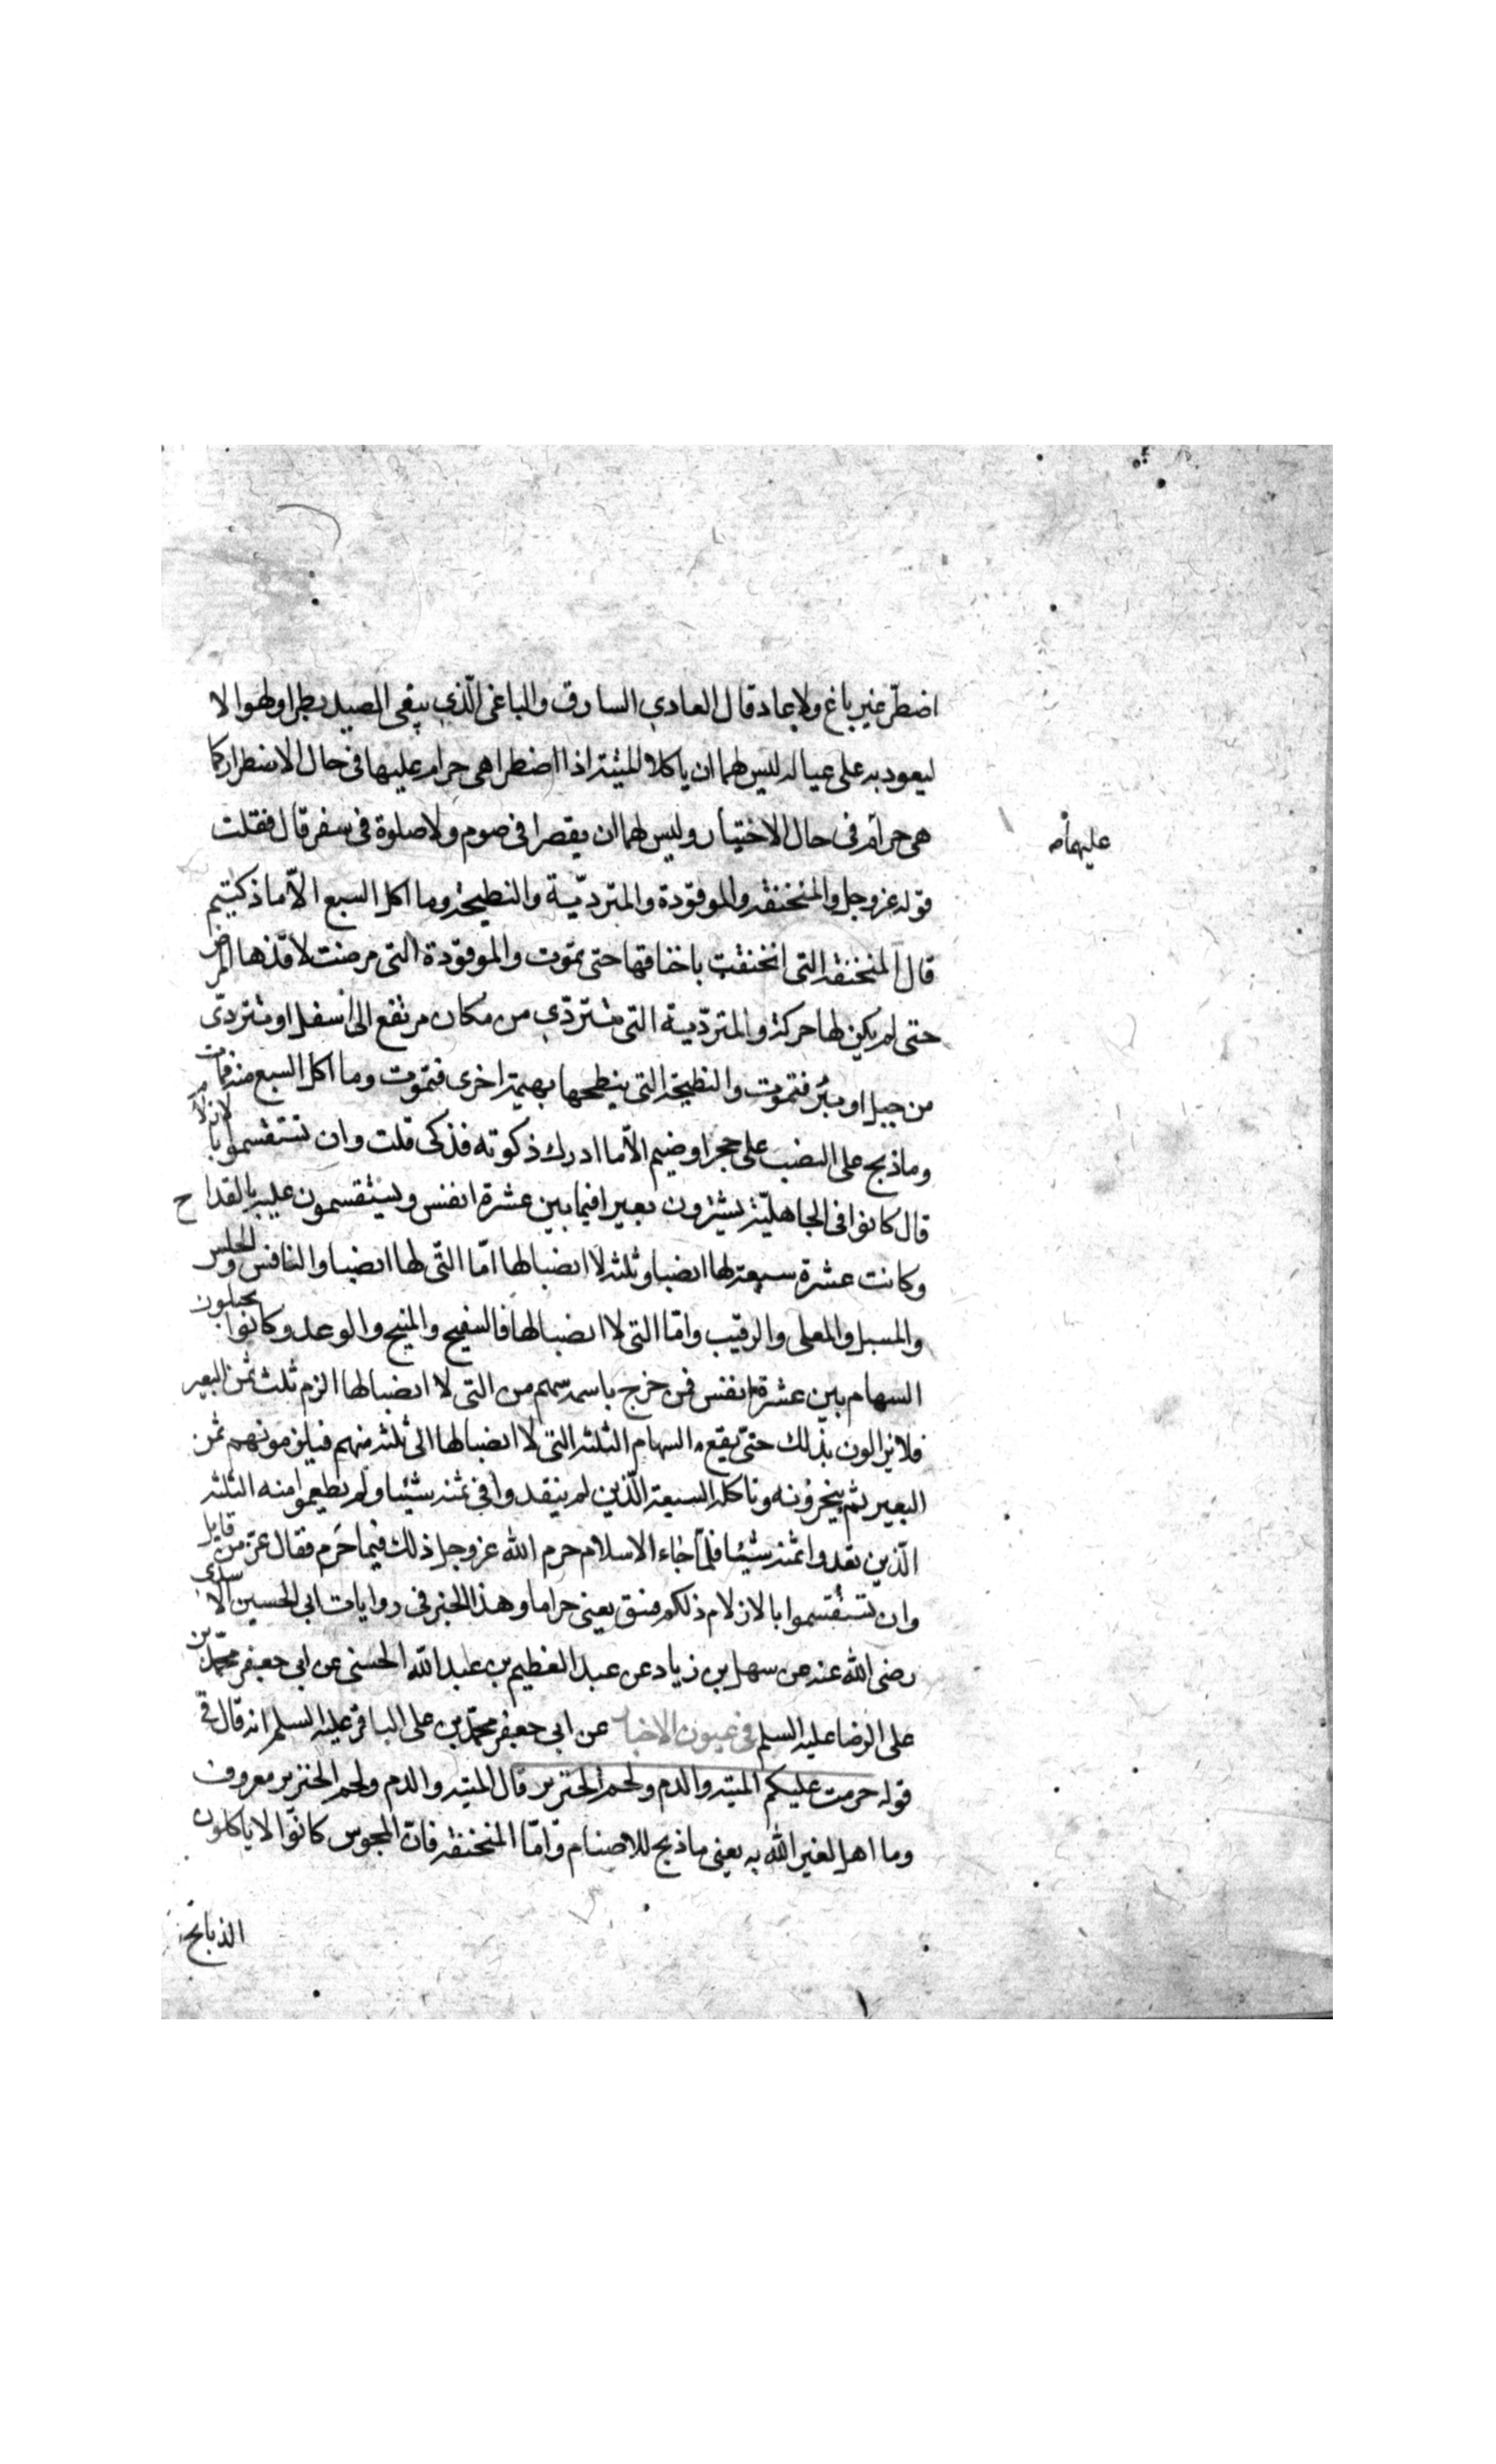 اضطر غير باغ ولا عاد قال العادي السارق والباغى الّذي يبغى الصيد بطرا ولهوا لا
ليعود به على عياله ليس لهما ان ياكلا الميتة اذا اضطرا هى حرام عليهما فى حال الاضطرار كما
هى حرام فى حال الاختيار وليس لهما ان يقصرا فى صوم ولا صلوة فى سفر قال فقلت
عليهما
قوله عز وجل والمنخنقة والموقوذة والمتردّية والنطيحة وما اكل السبع الّا ما ذكيتم
قال المنخنقة التى انخنقت باخناقها حتى تموت والموقوذة التى مرضت لاقذها المرض
حتى لم يكن لها حركة والمتردّية التى تتردّى من مكان مرتفع الى اسفل او تتردّى
من جبل او بئر فتموت والنطيحة التى ينطحها بهيمة اخرى فتموت وما اكل السبع منه فمات
وما ذبح على النصب على حجر او صنم الّا ما ادرك ذكوته فذكى قلت وان تستقسموا بالازلام
قال كانوا فى الجاهليّة يشترون بعيرا فيما بين عشرة انفس ويستقسمون عليه بالقداح
وكانت عشرة سبعة لها انصبا وثلثة لا انصبا لها امّا التّى لها انصبا والنافس والحلس
والمسبل والمعلى والرقيب وامّا التى لا انصبا لها فالسفيح والمنيح والوعد وكانوا يحيلون
السهام بين عشرة انفس فمن خرج باسمه سهم من التى لا انصبا لها الزم ثلث ثمن البعير
فلا يزالون بذلك حتّى يقع السهام الثلثة التى لا انصبا لها الى ثلثة منهم فيلزمونهم ثمن
البعير ثم ينحرونه وتاكله السبعة الّذين لم ينقدوا فى ثمنه شيئا ولم يطعموا منه الثلثة
الّذين نقدوا ثمنه شيئا فلمّا جاء الاسلام حرم الله عز وجل ذلك فيما حرم فقال عزّ من قايل
وان تستقسموا بالازلام ذلكم فسق يعنى حراما وهذا الخبر فى روايات ابى الحسين الاسدى
رضى الله عنه عن سهل بن زياد عن عبد العظيم بن عبد الله الحسنى عن ابى جعفر محمّد بن
على الرضا عليه السلم فى عيون الاخبار عن ابى جعفر محمّد بن على الباقر عليه السلم انه قال فى
قوله حرمت عليكم الميتة والدم ولحم الخنزير قال الميتة والدم ولحم الخنزير معروف
وما اهل لغير الله به يعنى ما ذبح للاصنام وامّا المنخنقة فان المجوس كانوا لا ياكلون
الذبائح